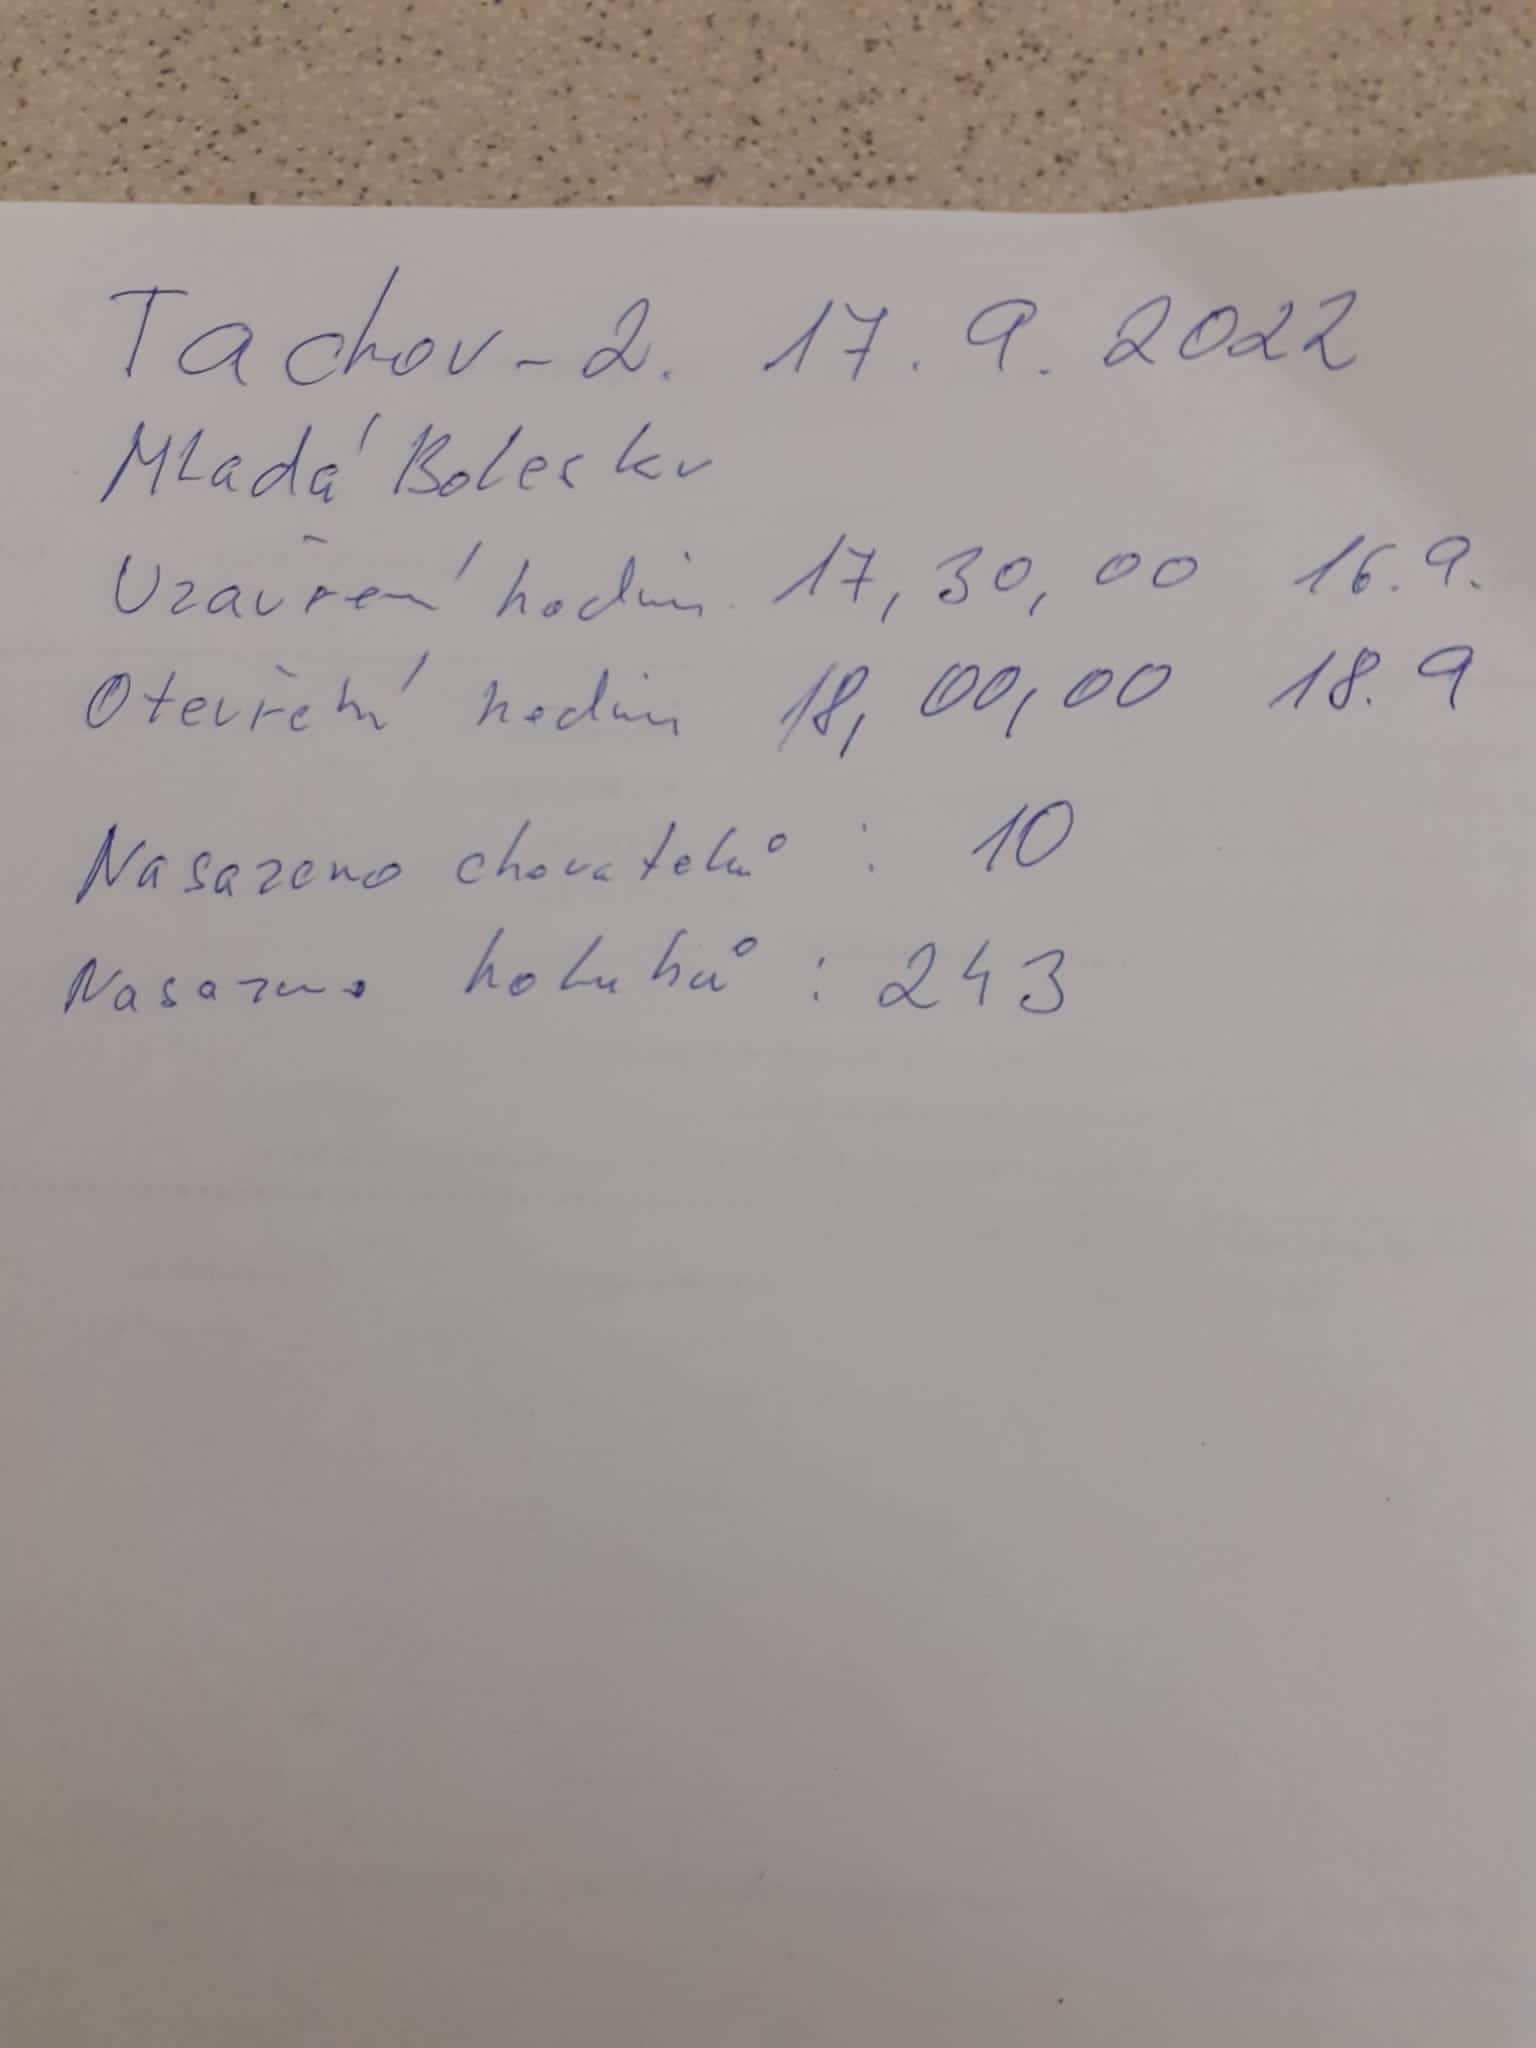 Tachov - 2. 17. 9. 2022
Mladá Boleslav
Uzavření hodin 17,30,00 16.9.
Otevření hodin 18,00,00 18.9
Nasazeno chovatelů : 10
Nasazeno holubů : 243